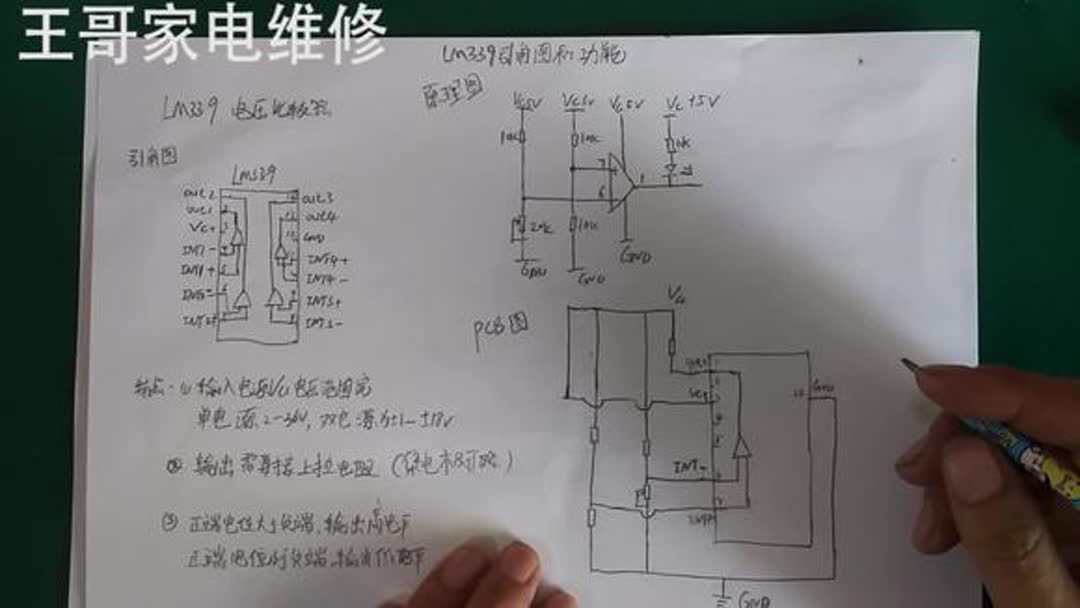 王哥家电维修
LM339引角图和功能
LM339 电压比较器
原理图
引角图
LM339
out2
out1
Vc+
INT1-
INT1+
out3
out4
GND
INT4+
INT4-
INT3+
INT3-
Vc5V
Vc5V
Vc5V
Vc+5V
10K
10K
1K
7
6
1
20K
10K
GND
GND
GND
PCB图
Vcc
1
2
3
4
5
6
7
12
GND
INT-
特点:①输入电源Vcc电压范围宽
单电源2-36V,双电源±1-±18V
②输出需要接上拉电阻
③正端电位大于负端,输出高电平
正端电位 负端,输出低电平
GND